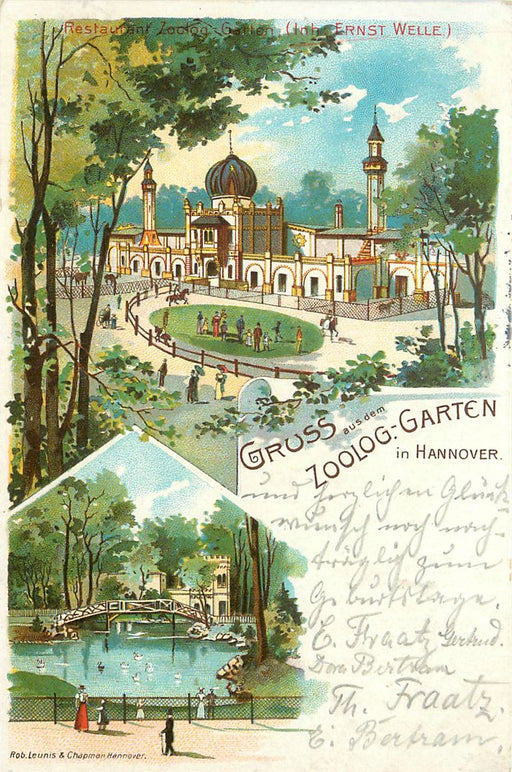 Restaurant Zoolog. Garten. (Inh. ERNST WELLE.)
GRUSS aus dem
ZOOLOG.-GARTEN
in HANNOVER.
und herzlichen Glück-
wunsch noch nach-
träglich zum
Geburtstage.
E. Fraatz Gertrud.
Dora Bertram
Th. Fraatz.
E. Bertram.
Rob. Leunis & Chapman Hannover.